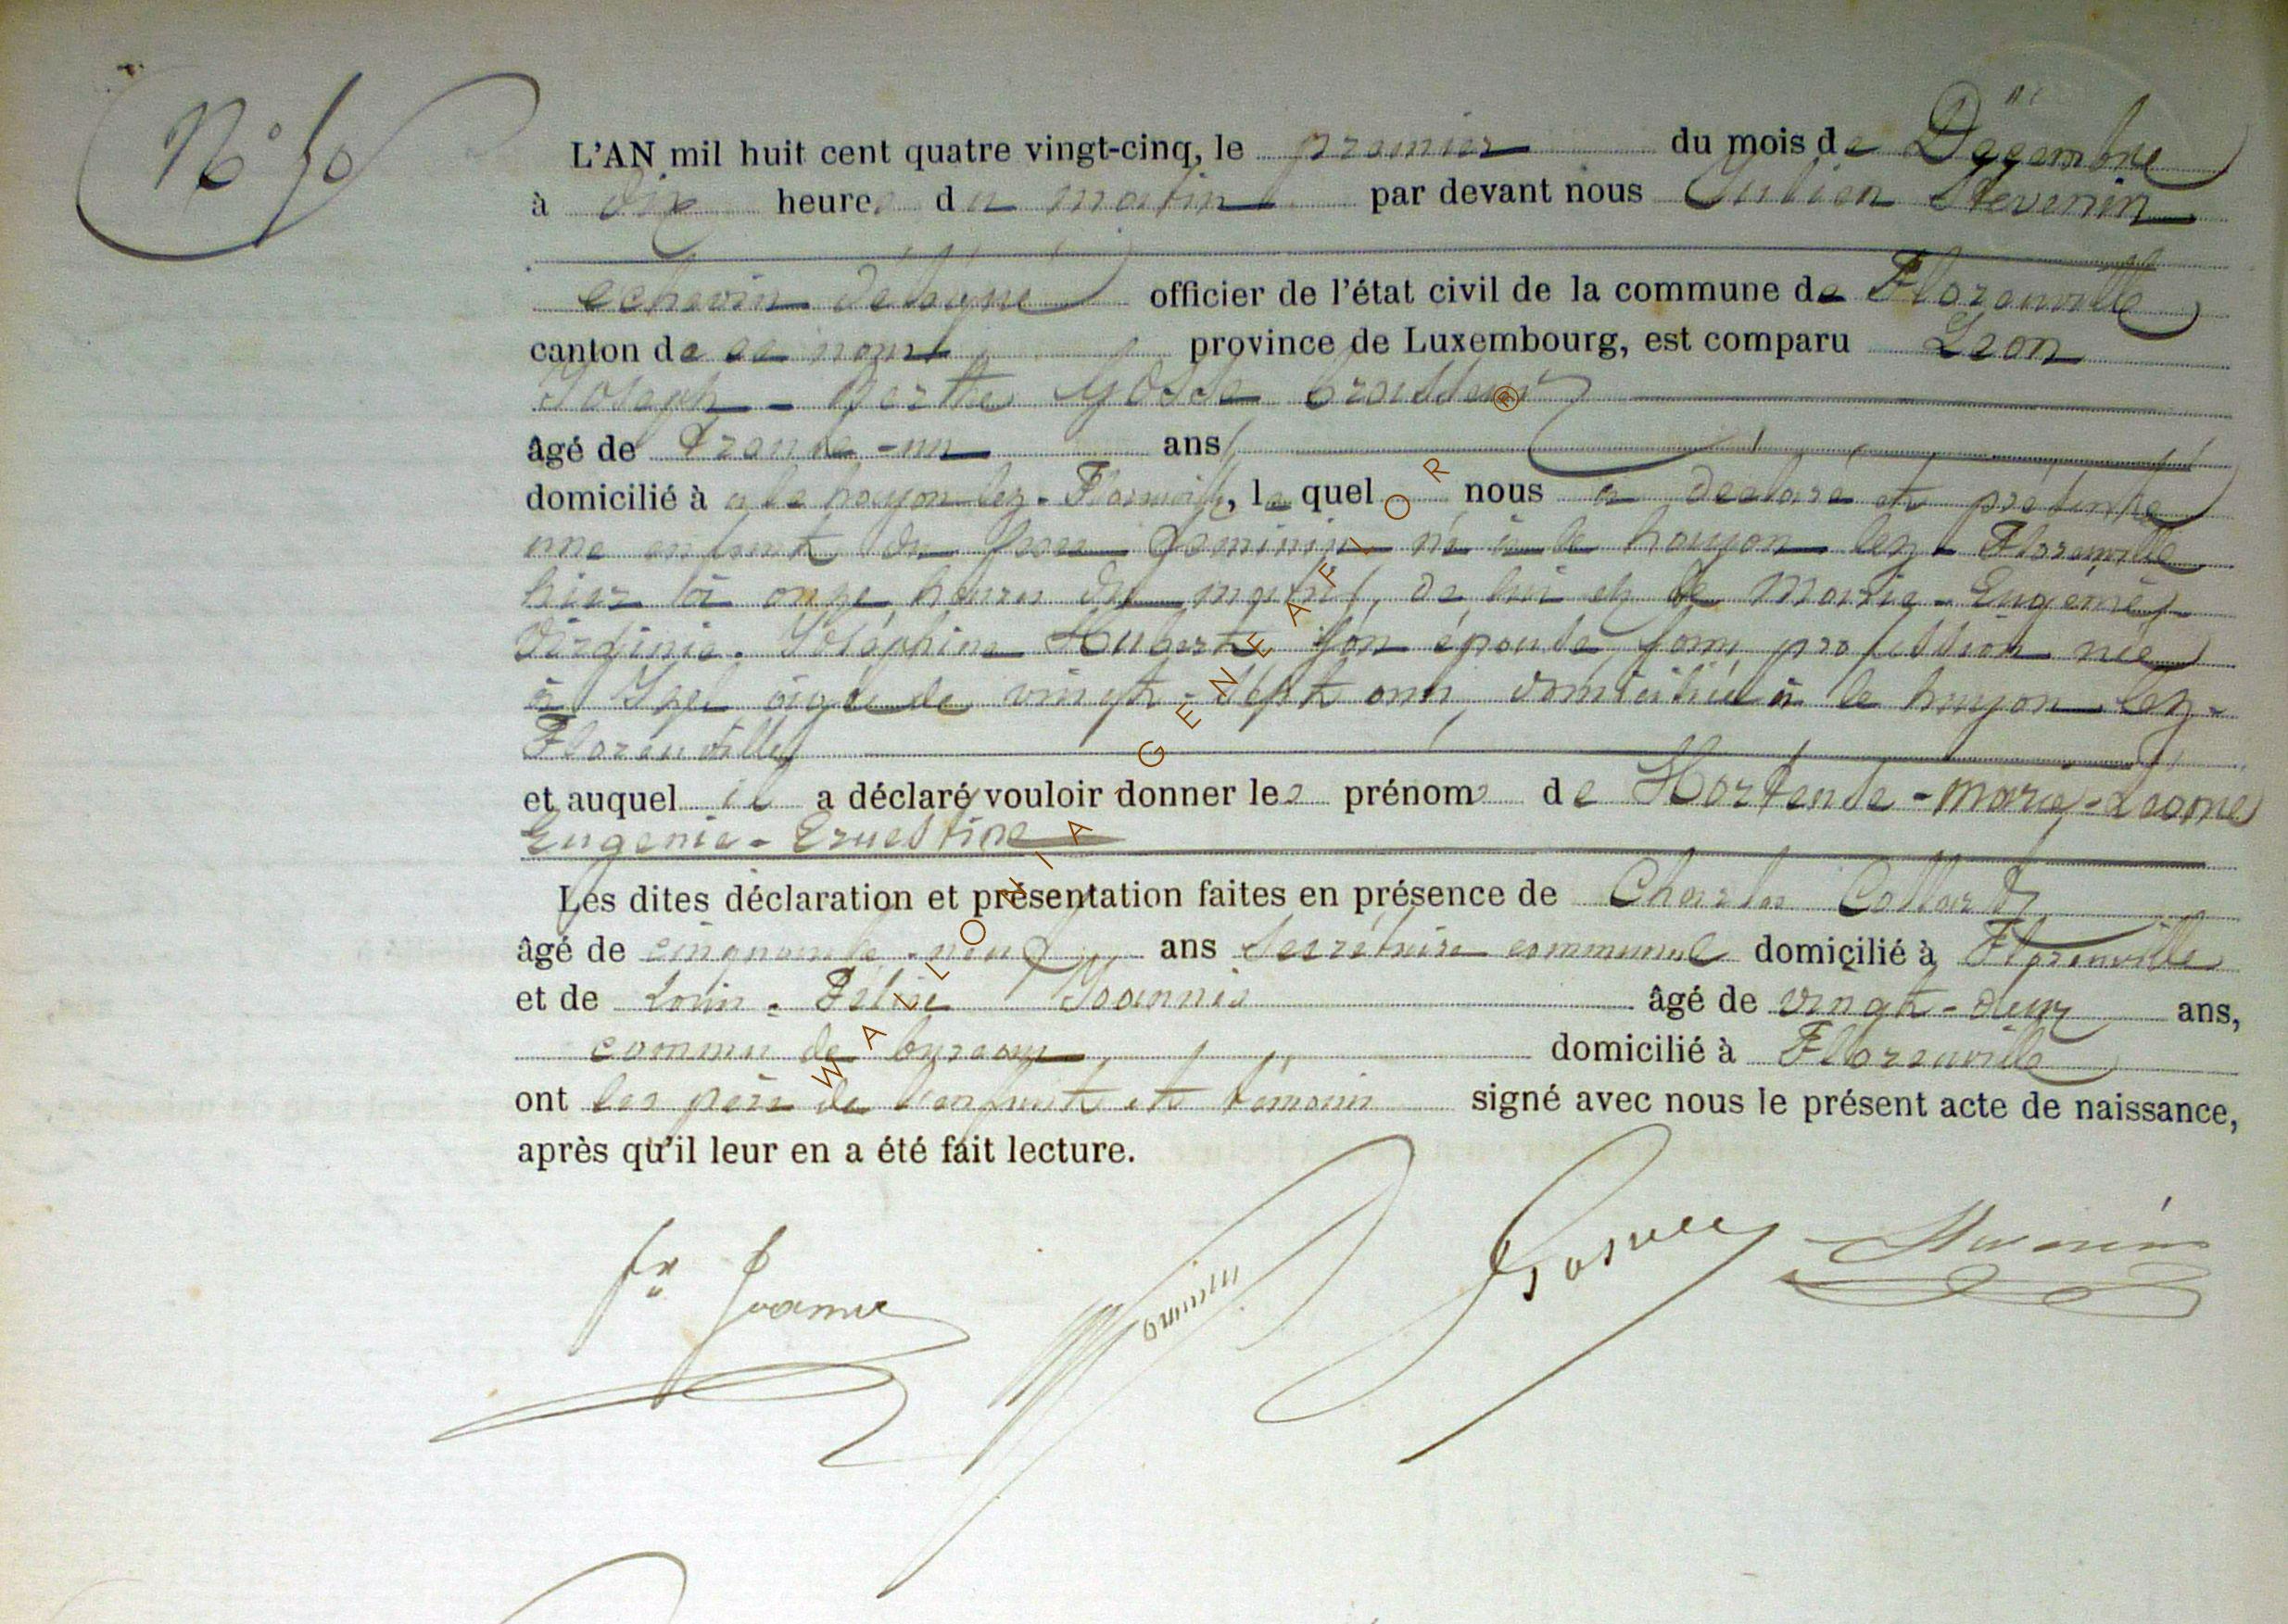 N° 50
L'AN mil huit cent quatre vingt-cinq, le premier du mois de Décembre
à dix heures du matin par devant nous Julien Stevenin
echevin délégué officier de l'état civil de la commune de Florenville
canton de ce nom province de Luxembourg, est comparu Leon
Joseph - Gosse brasseur
âgé de trente-un ans
domicilié à a le hayon lez-Florenville, le quel nous a declaré et présenté
une enfant du sexe feminin né à le hayon lez-Florenville
hier à onze heures du matin, de lui et de Marie-Eugénie
Virginie-Joséphine Hubert son épouse sans profession née
à Izel agée de vingt-sept ans, domiciliée à le hayon lez-
Florenville
et auquel il a déclaré vouloir donner les prénoms de Hortense-Marie-Léonie
Eugenie-Ernestine
Les dites déclaration et présentation faites en présence de Charles Collard
âgé de cinquante-neuf ans secrétaire communal domicilié à Florenville
et de Louis-Félix Joannis âgé de vingt-deux ans,
commis de bureau domicilié à Florenville
ont les père de l'enfant et témoins signé avec nous le présent acte de naissance,
après qu'il leur en a été fait lecture.
WALLONIA GENEAFLOR ®